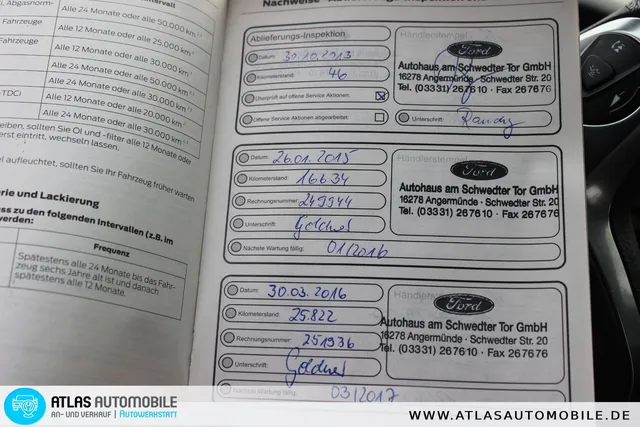 Alle 24 Monate oder alle 50.000 km
Fahrzeuge
Alle 12 Monate oder alle 25.000 km
Fahrzeuge
Alle 12 Monate oder alle 30.000 km
Alle 24 Monate oder alle 50.000 km
Alle 24 Monate oder alle 30.000 km
-TDCi
Alle 12 Monate oder alle 20.000 km
Alle 24 Monate oder alle 30.000 km
sollten Sie Öl und -filter alle 12 Monate oder
erst eintritt, wechseln lassen.
aufleuchtet, sollten Sie Ihr Fahrzeug früher warten
rie und Lackierung
ss zu den folgenden Intervallen (z.B. im
werden:
Frequenz
Spätestens alle 24 Monate bis das Fahr-
zeug sechs Jahre alt ist und danach
spätestens alle 12 Monate.
Ablieferungs-Inspektion
Datum: 30.10.2013
Kilometerstand: 46
Überprüft auf offene Service Aktionen:
Offene Service Aktionen abgearbeitet:
Ford
Autohaus am Schwedter Tor GmbH
16278 Angermünde · Schwedter Str. 20
Tel. (03331) 267610 · Fax 267676
Unterschrift:
Datum: 26.01.2015
Kilometerstand: 16634
Rechnungsnummer: 249944
Unterschrift:
Nächste Wartung fällig: 01/2016
Händlerstempel
Ford
Autohaus am Schwedter Tor GmbH
16278 Angermünde · Schwedter Str. 20
Tel. (03331) 267610 · Fax 267676
Datum: 30.03.2016
Kilometerstand: 25.822
Rechnungsnummer: 251936
Unterschrift:
Nächste Wartung fällig: 03/2017
Händlerstempel
Ford
Autohaus am Schwedter Tor GmbH
16278 Angermünde · Schwedter Str. 20
Tel. (03331) 267610 · Fax 267676
ATLAS AUTOMOBILE
AN- UND VERKAUF | AUTOWERKSTATT
WWW.ATLASAUTOMOBILE.DE